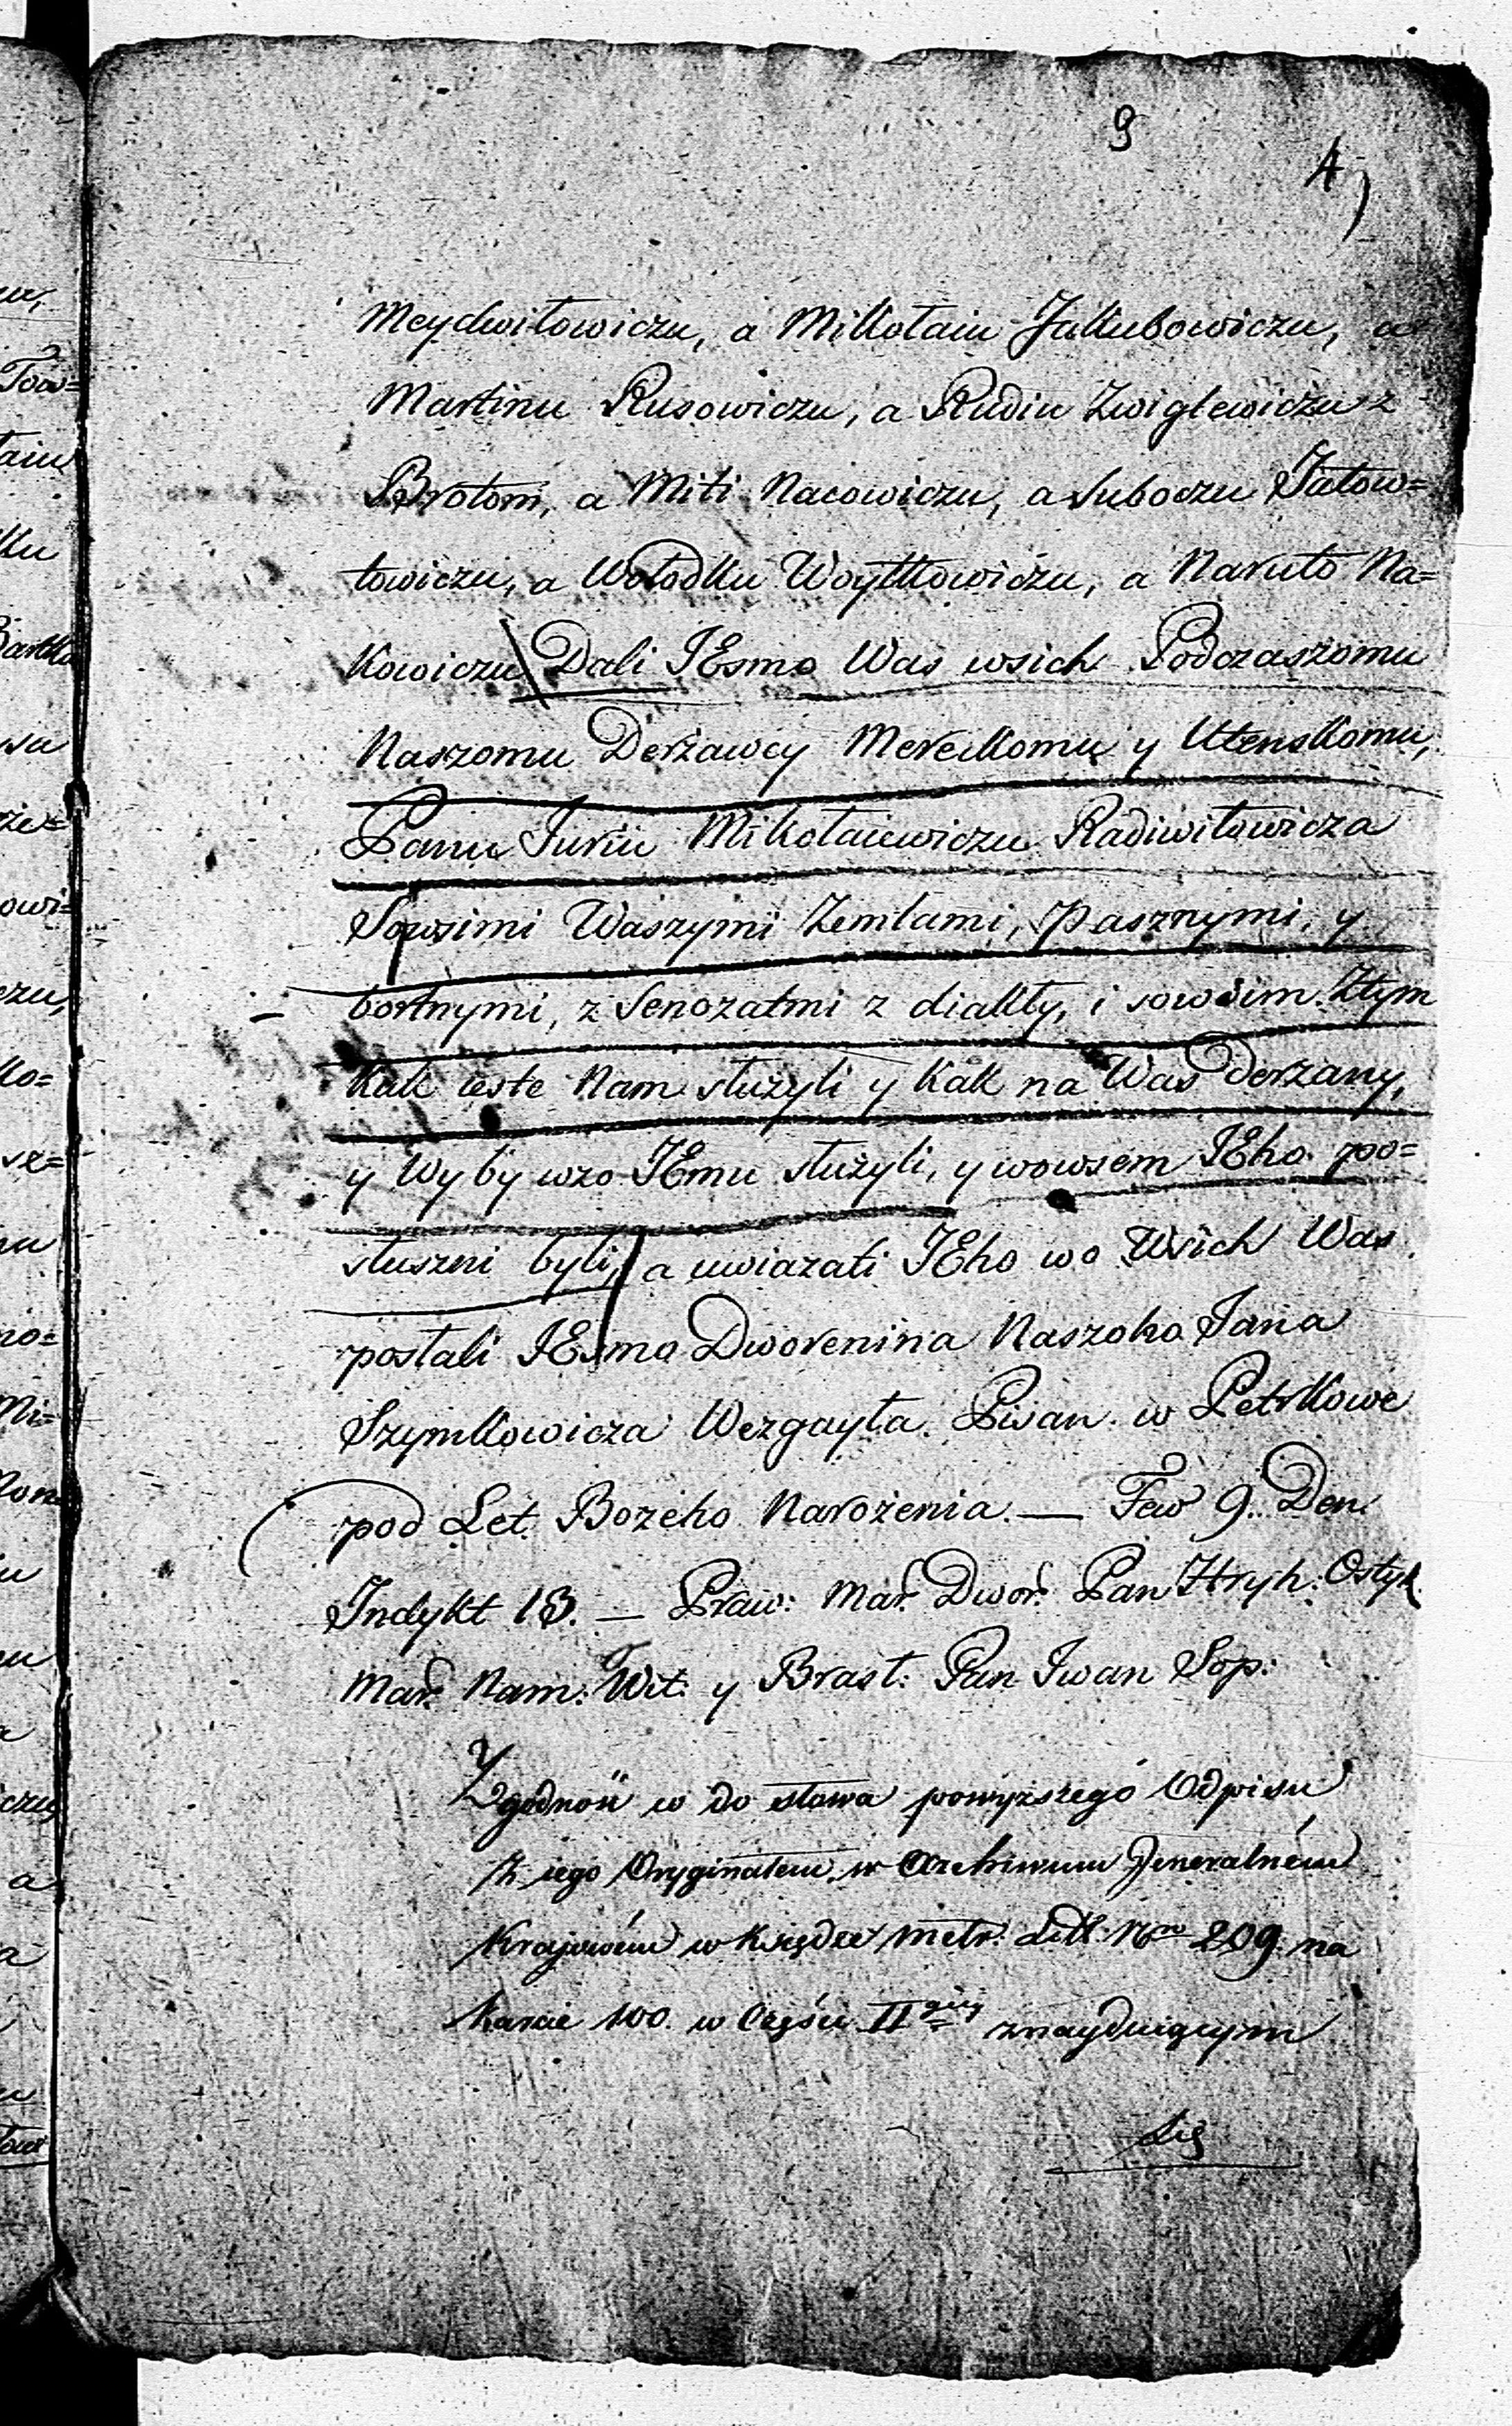 9
4)
Meydwiłowiczu, a Mikołaiu Jakubowiczu, a
Martinu Rusowiczu, a Rudiu Zwiglewiczu z
Brotom, a Miti Nacowiczu, a Suboczu Jatow=
towiczu, a Wołodku Woytkowiczu, a Naruto Na=
kowiczu Dali IEsmo Was wsich Podczaszomu
Naszomu Derżawcy Mereckomu y Utenskomu,
Panu Juriu Mikołaiewiczu Radiwiłowicza
Sowsimi Waszymi Zemlami, pasznymi, y
bortnymi, z Senozatmi z diakły, i sowsim Ztym
Kak ieste Nam służyli y Kak na Was derżany,
y Wy by wżo IEmu służyli, y wowsem IEho po=
słuszni byli, a uwiazati IEho wo Wsich Was
posłali IEsmo Dworenina Naszoho Jana
Szymkowicza Wezgayła. Pisan w Petrkowe
pod Let. Bozeho Narożenia. — Few 9. Den.
Indykt 13. — Praw: Mar. Dwor. Pan Hryh: Ostyk.
Mar. Nam: Wit: y Brast: Pan Iwan Sop:
Zgodność w do słowa powyższego Odpisu
z iego Oryginałem w Archiwum Jeneralném
Krajowém w Księdze Metr. Litt. Nro 209. na
karcie 100. w Części II giey znayduiącym
się